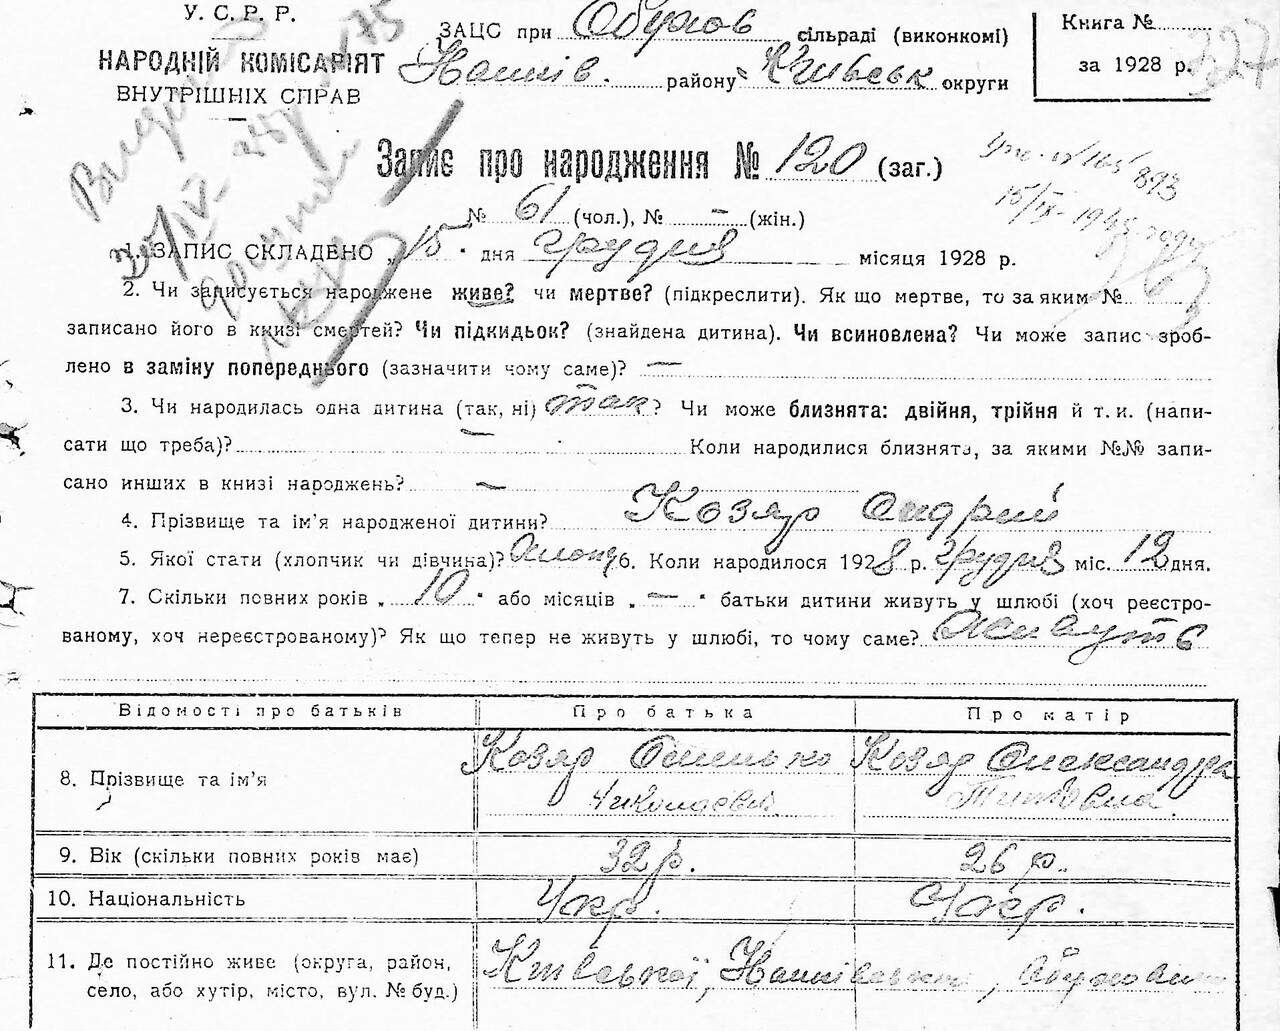 У. С. Р. Р.
НАРОДНІЙ КОМІСАРІЯТ
ВНУТРІШНІХ СПРАВ
ЗАЦС при Обухов сільраді (виконкомі)
району Київськ округи
Книга №
за 1928 р.
327
Запис про народження № 120 (заг.)
№ 61 (чол.), № – (жін.)
15/IX-1948 году
1. ЗАПИС СКЛАДЕНО „15" дня грудня місяця 1928 р.
2. Чи записується народжене живе? чи мертве? (підкреслити). Як що мертве, то за яким №
записано його в книзі смертей? Чи підкидьок? (знайдена дитина). Чи всиновлена? Чи може запис зроб-
лено в заміну попереднього (зазначити чому саме)? —
3. Чи народилась одна дитина (так, ні) так? Чи може близнята: двійня, трійня й т. и. (напи-
сати що треба)? — Коли народилися близнята, за якими №№ запи-
сано инших в книзі народжень? —
4. Прізвище та ім'я народженої дитини? Козяр Андрій
5. Якої стати (хлопчик чи дівчина)? Хлопч 6. Коли народилося 1928 р. грудня міс. 12 дня.
7. Скільки повних років „10" або місяців „—" батьки дитини живуть у шлюбі (хоч реєстро-
ваному, хоч нереєстрованому)? Як що тепер не живуть у шлюбі, то чому саме? Живуть
Відомості про батьків Про батька Про матір
8. Прізвище та ім'я Козяр Козяр Олександра
Николаєвич Титовна
9. Вік (скільки повних років має) 32 р. 26 р.
10. Національність Укр. Укр.
11. Де постійно живе (округа, район,
село, або хутір, місто, вул. № буд.)
Київської,